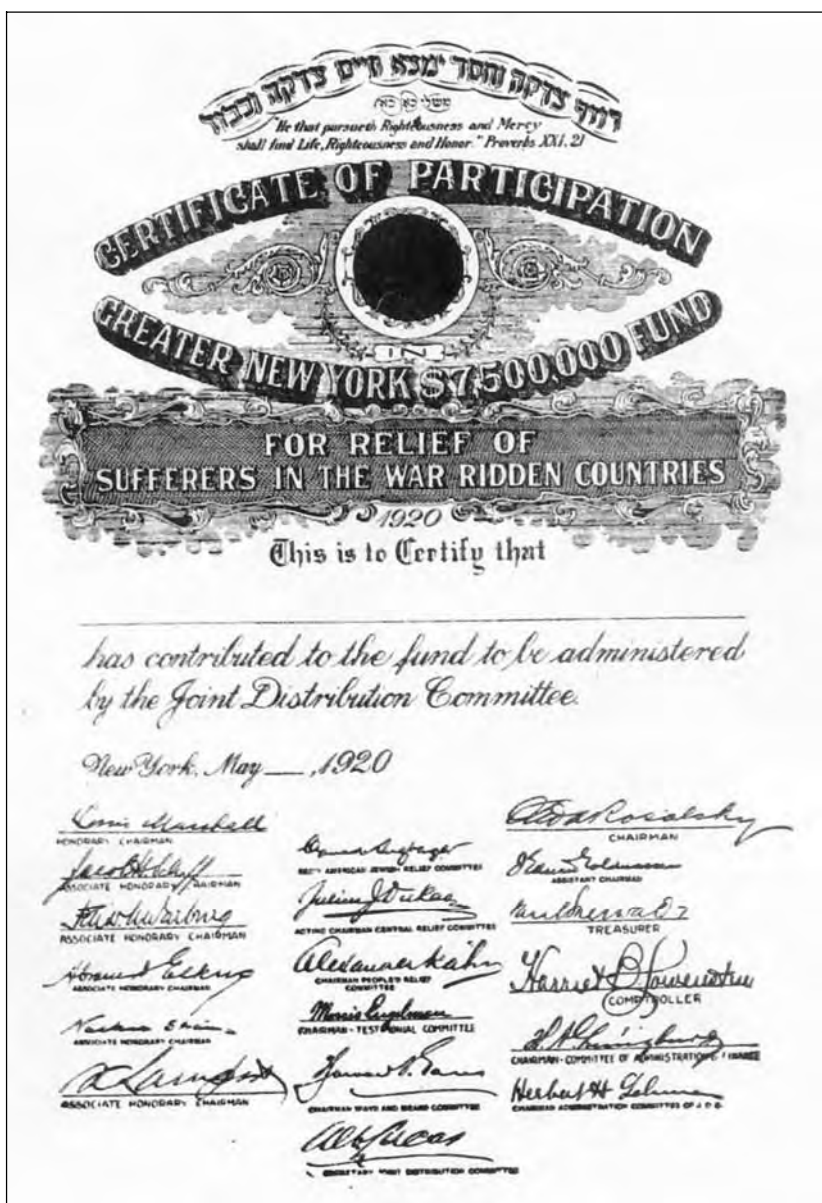 רודף צדקה וחסד ימצא חיים צדקה וכבוד
משלי כא כא
"He that pursueth Righteousness and Mercy
shall find Life, Righteousness and Honor." Proverbs XXI, 21
CERTIFICATE OF PARTICIPATION
IN
GREATER NEW YORK $7,500,000 FUND
FOR RELIEF OF
SUFFERERS IN THE WAR RIDDEN COUNTRIES
1920
This is to Certify that
has contributed to the fund to be administered
by the Joint Distribution Committee.
New York, May ___, 1920
Louis Marshall
HONORARY CHAIRMAN
Jacob H. Schiff
ASSOCIATE HONORARY CHAIRMAN
Felix M. Warburg
ASSOCIATE HONORARY CHAIRMAN
Elkus
ASSOCIATE HONORARY CHAIRMAN
Nathan
ASSOCIATE HONORARY CHAIRMAN
Lamport
ASSOCIATE HONORARY CHAIRMAN
SECY AMERICAN JEWISH RELIEF COMMITTEE
Julius J. Dukas
ACTING CHAIRMAN CENTRAL RELIEF COMMITTEE
Alexander Kahn
CHAIRMAN PEOPLE'S RELIEF
COMMITTEE
Morris Engelman
CHAIRMAN - TESTIMONIAL COMMITTEE
CHAIRMAN WAYS AND MEANS COMMITTEE
Alb Lucas
SECRETARY JOINT DISTRIBUTION COMMITTEE
Rosalsky
CHAIRMAN
ASSISTANT CHAIRMAN
Paul Baerwald
TREASURER
Harriet B. Lowenstein
COMPTROLLER
CHAIRMAN - COMMITTEE OF ADMINISTRATION & FINANCE
Herbert H. Lehman
CHAIRMAN ADMINISTRATION COMMITTEE OF J. D. C.